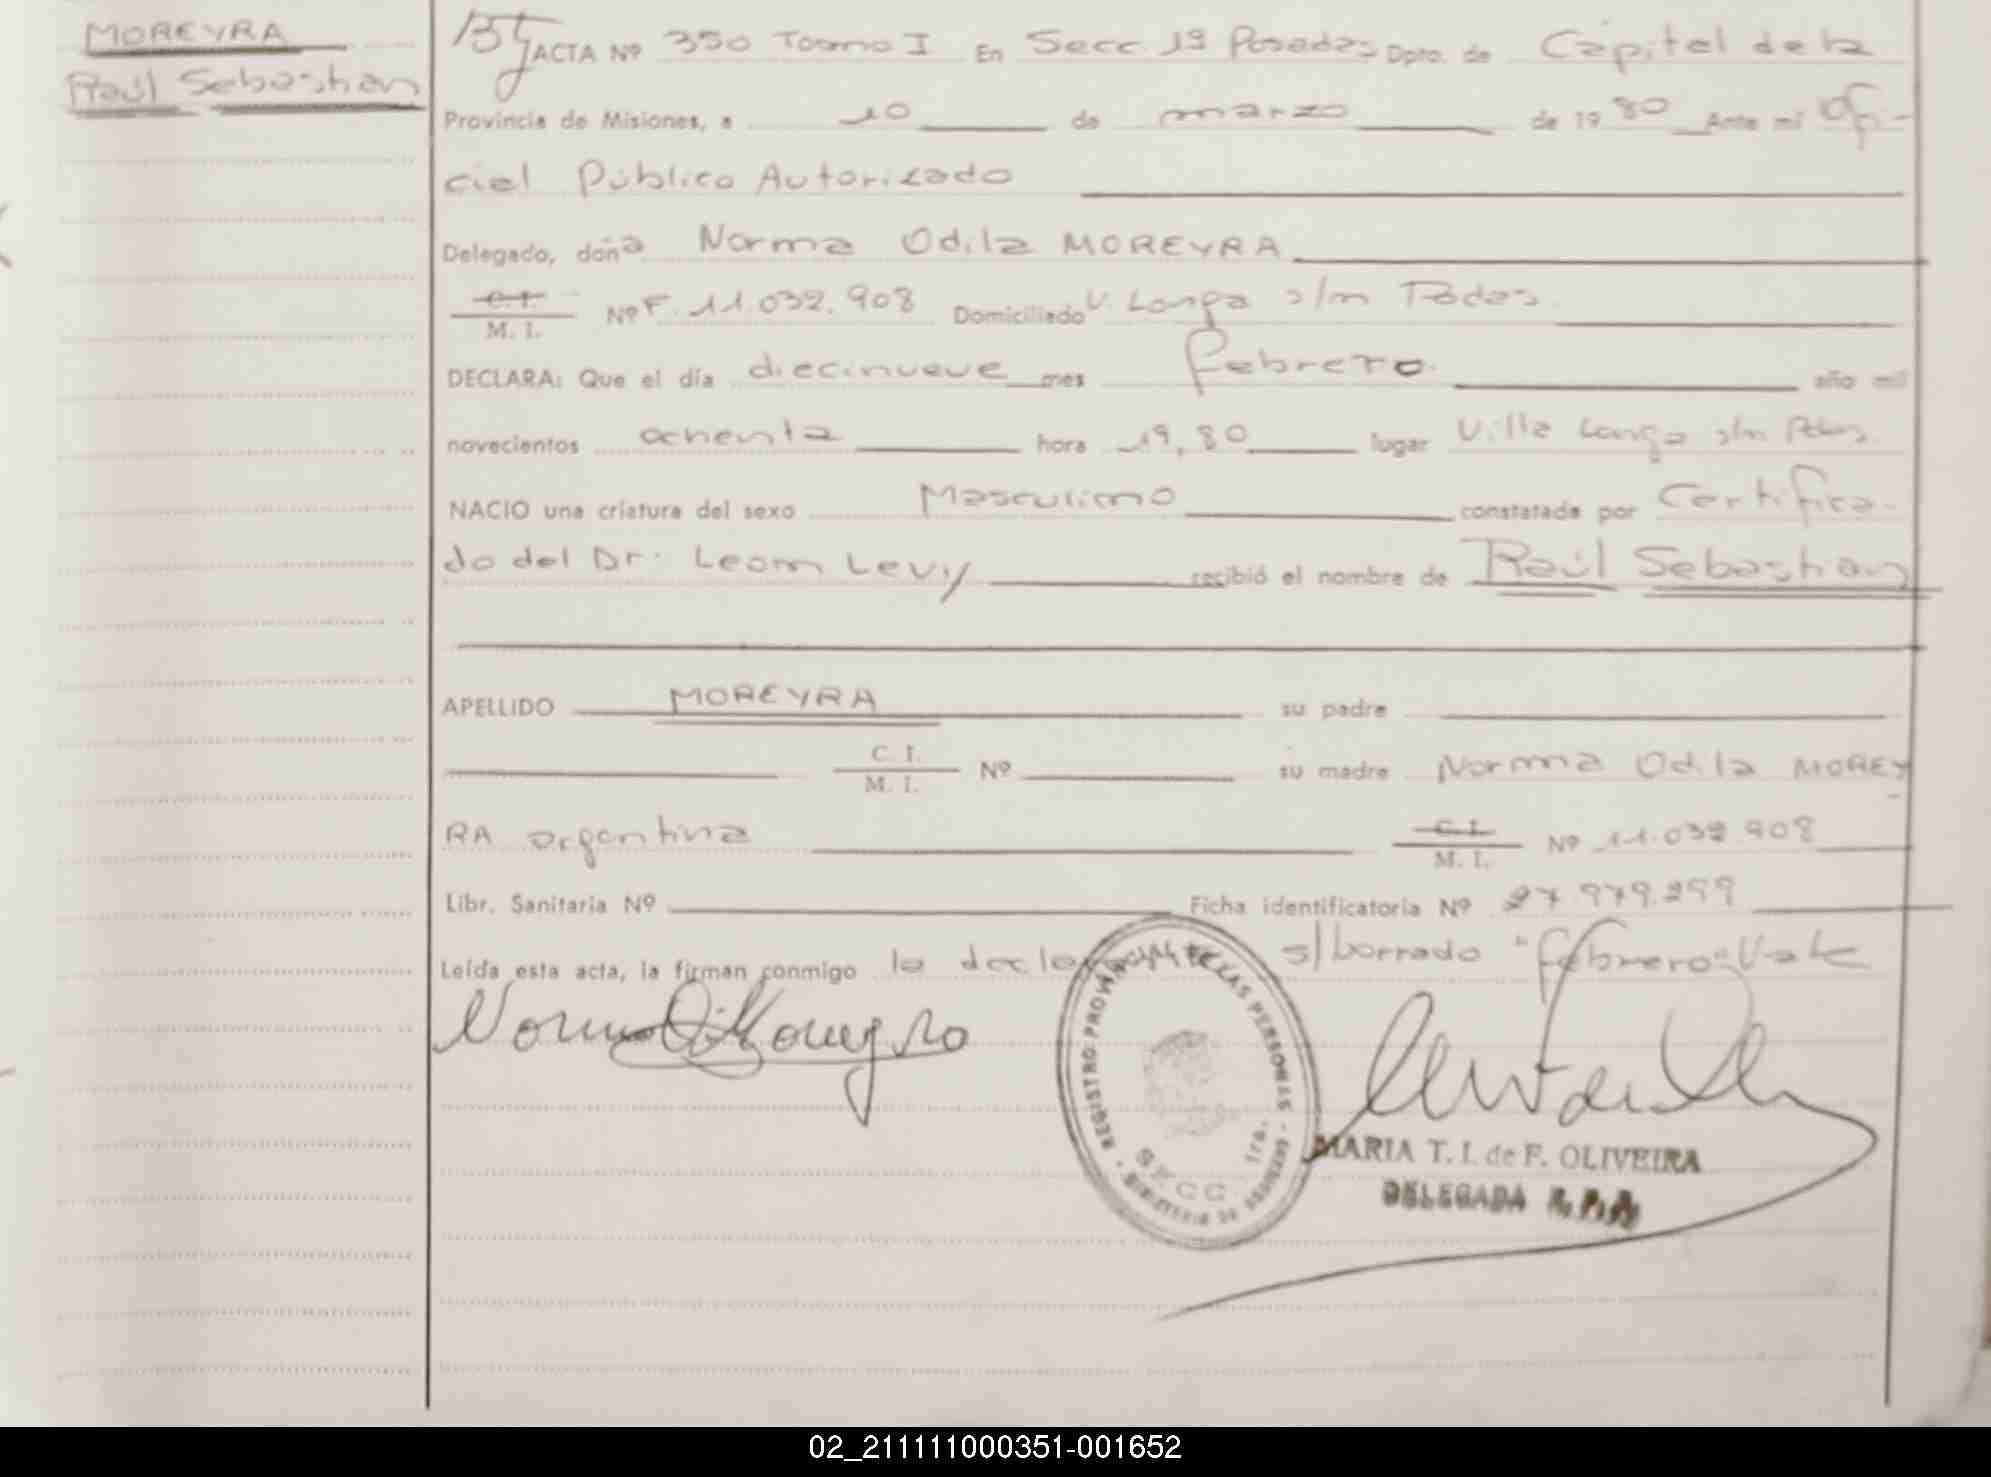 MOREYRA
Raúl Sebastian
ACTA Nº 350 Toomo I En Secc. 1ª Posadas Dpto. de Capital de la
Provincia de Misiones, a 10 de marzo de 1980 Ante mí Ofi-
cial Público Autorizado
Delegado, doña Norma Odila MOREYRA
C. I.
M. I. Nº F. 11.032.908 Domiciliado V. Longa s/n Podas.
DECLARA: Que el día diecinueve mes febrero. año mil
novecientos ochenta hora 19,80 lugar Villa Longa s/n Pdas.
NACIO una criatura del sexo Masculino constatada por Certifica-
do del Dr. Leon Levy recibió el nombre de Raúl Sebastian
APELLIDO MOREYRA su padre
C. I.
M. I. Nº su madre Norma Odila MOREY
RA argentina C. I.
M. I. Nº 11.032.908
Libr. Sanitaria Nº Ficha identificatoria Nº 27.979.299
Leída esta acta, la firman conmigo la s/borrado "febrero" Vale
REGISTRO PROVINCIAL DE LAS PERSONAS
SECC 1ra.
MARIA T. I. de F. OLIVEIRA
DELEGADA R.P.P.
02_211111000351-001652